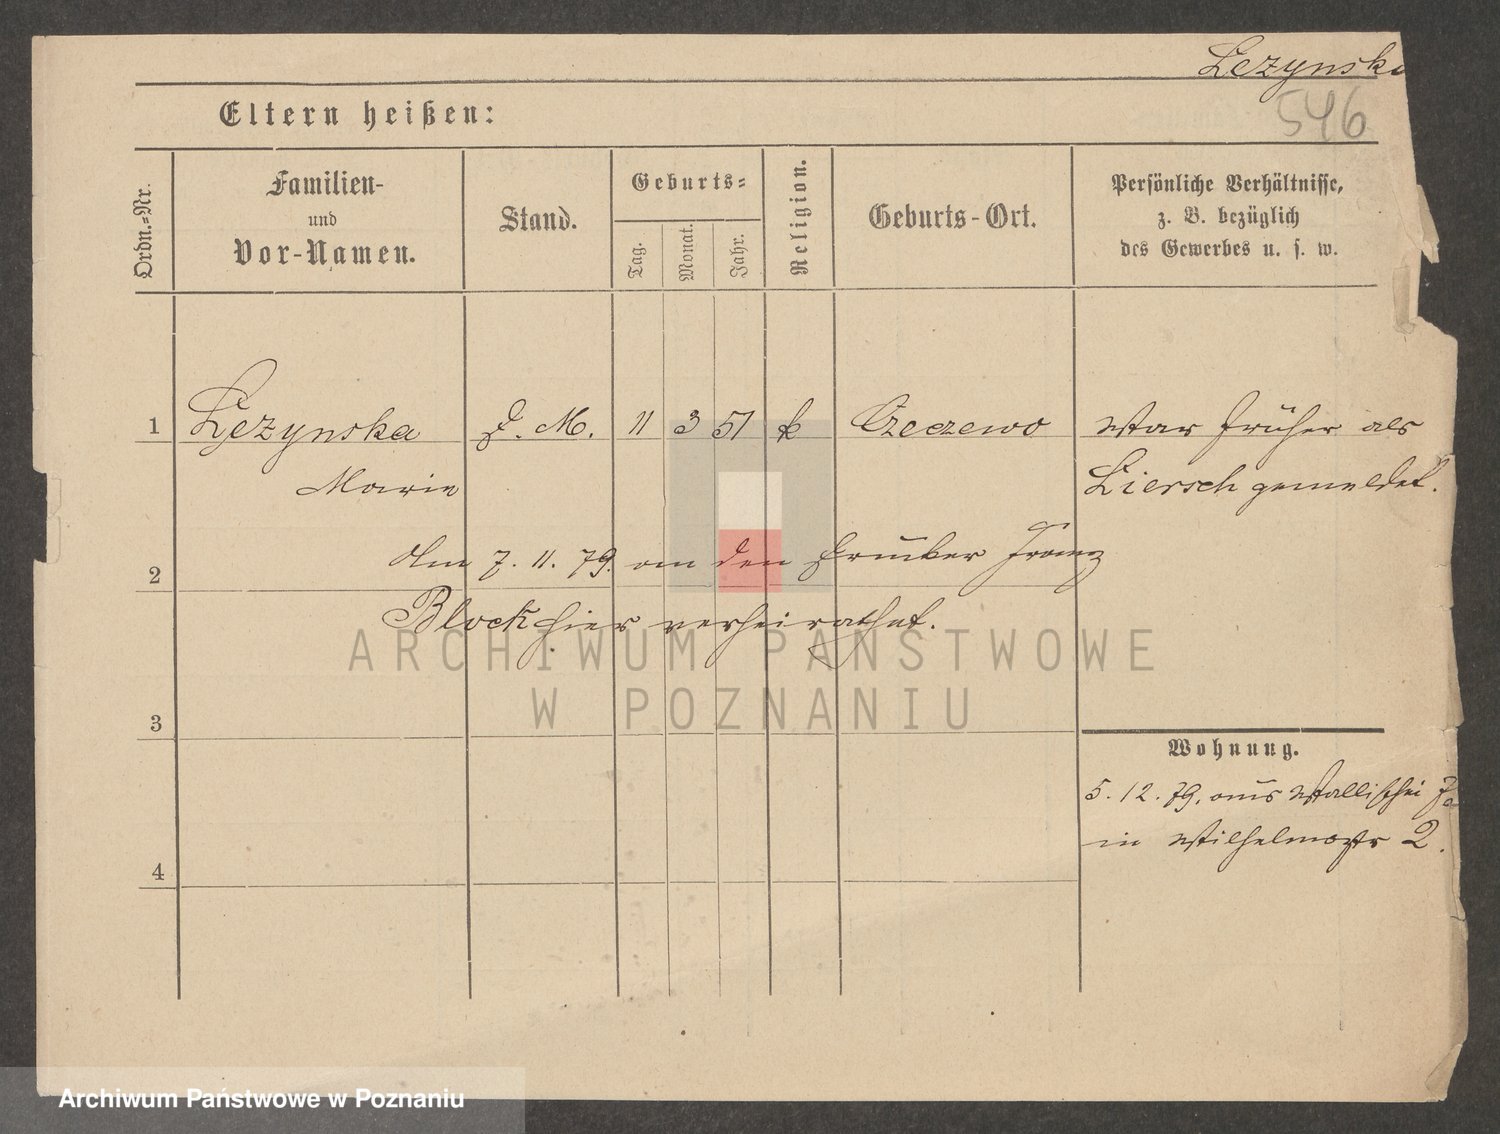 Lezynska
546
Eltern heißen:
Ordn.-Nr.
Familien-
und
Vor-Namen.
Stand.
Geburts-
Tag.
Monat.
Jahr.
Religion.
Geburts-Ort.
Persönliche Verhältnisse,
z. B. bezüglich
des Gewerbes u. s. w.
1 Lezynska D. M. 11 3 51 k Czeczewo War früher als
Marie Liersch gemeldet.
Am 7. 11. 79. an den Franz
2
Block hier verheirathet.
ARCHIWUM PAŃSTWOWE
W POZNANIU
3
Wohnung.
5. 12. 79. aus Wallischei
in Wilhelmsstr 2.
4
Archiwum Państwowe w Poznaniu